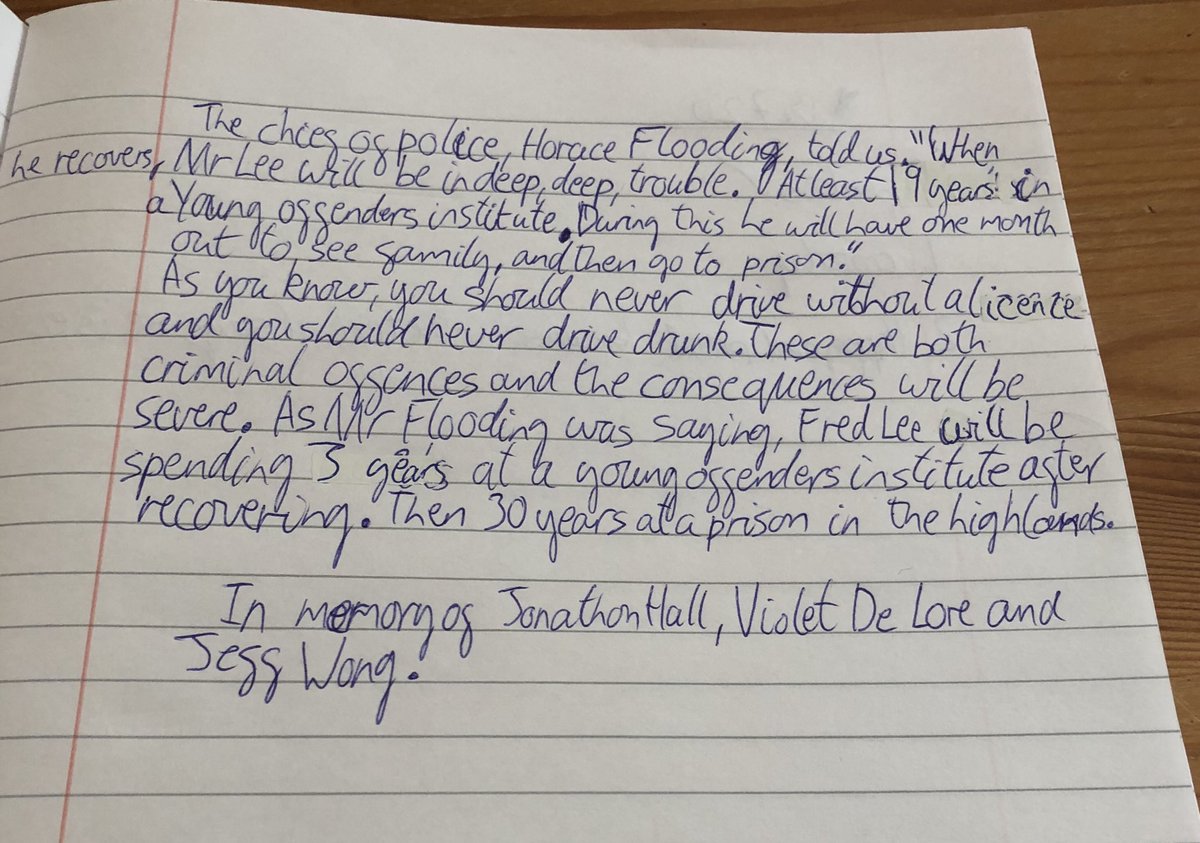 The chief of police, Horace Flooding, told us. "When
he recovers, Mr Lee will be in deep, deep, trouble. At least 19 years in
a Young offenders institute. During this he will have one month
out to see family, and then go to prison."
As you know, you should never drive without a licence
and you should never drive drunk. These are both
criminal offences and the consequences will be
severe. As Mr Flooding was saying, Fred Lee will be
spending 3 years at a young offenders institute after
recovering. Then 30 years at a prison in the highlands.
In memory of Jonathon Hall, Violet De Lore and
Jeff Wong.